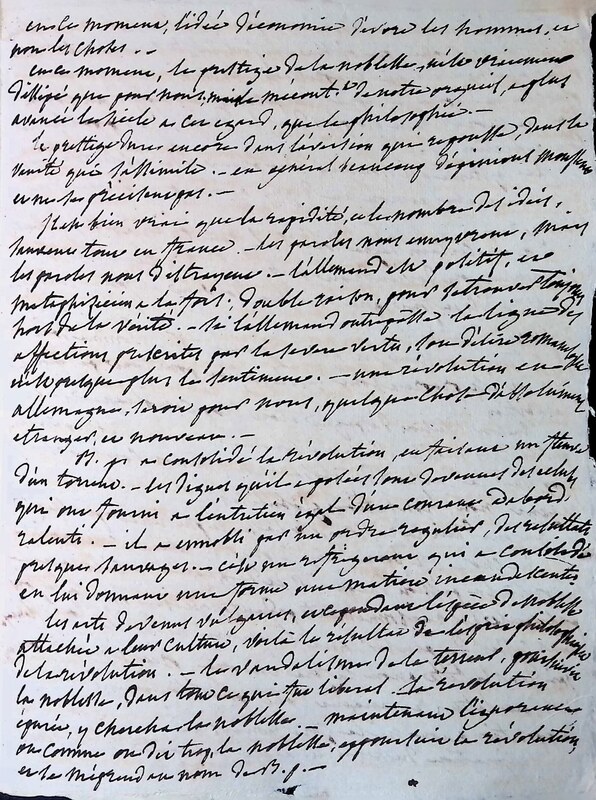 en ce moment, l'idée d'économie dévore les hommes, et
non les choses. —
en ce moment, le prestige de la noblesse, n'est vraiment
dissipé que pour nous, mais le mécont.t de notre orgueil, a plus
avancé le siècle a cet egard, que la philosophie. —
le prestige dure encore dans l'aversion qui repousse, dans la
vanité qui s'assimile. — en général beaucoup d'opinions
et ne se précisent pas. —
il est bien vrai que la rapidité, et le nombre des idées,
sauvent tout en france. — les paroles nous enyvrent, mais
les paroles nous distrayent. — l'allemand est positif, et
metaphisicien a la fois; double raison, pour se trouver toujours
hors de la vérité. — si l'allemand outrepasse la ligne des
affections prescrites par la severe vertu, son délire romanesque
n'est presque plus le sentiment. — une révolution en
allemagne, seroit pour nous, quelque chose d'absolument
etranger, et nouveau. —
B. p. a consolidé la révolution, en faisant un fleuve
d'un torrent. — les digues qu'il a posées sont devenues des ecluses
qui ont fourni a l'entretien égal d'un courant d'abord
ralenti. — il a ennobli par un ordre regulier, des résultats
presque sauvages. — c'est un refrigerant qui a consolidé
en lui donnant une forme une matiere incandescente
les arts devenus vulgaires, et cependant l'espèce de noblesse
attachée a leur culture, voila le resultat de l'esprit philosophique
de la révolution. — le vandalisme de la terreur, poursuivit
la noblesse, dans tout ce qui fut liberal. la révolution
épurée, y chercha la noblesse. — maintenant l'ignorance
ou comme on dit trop, la noblesse, en poursuit la révolution,
et se méprend au nom de B. p. —